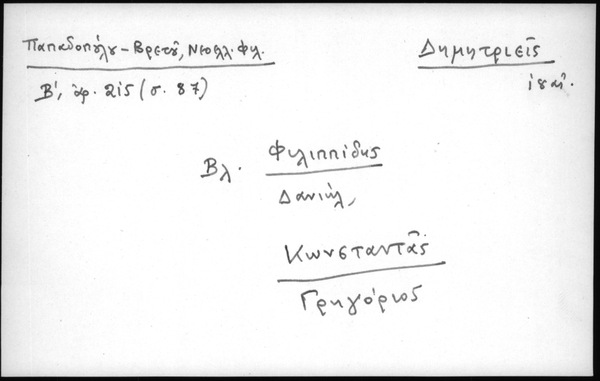 Παπαδοπούλου-Βρετοῦ, Νεοελλ. Φιλ.
Β', ἀρ. 215 (σ. 87)
Δημητριεῖς
Βλ. Φιλιππίδης
Δανιήλ,
Κωνσταντᾶς
Γρηγόριος